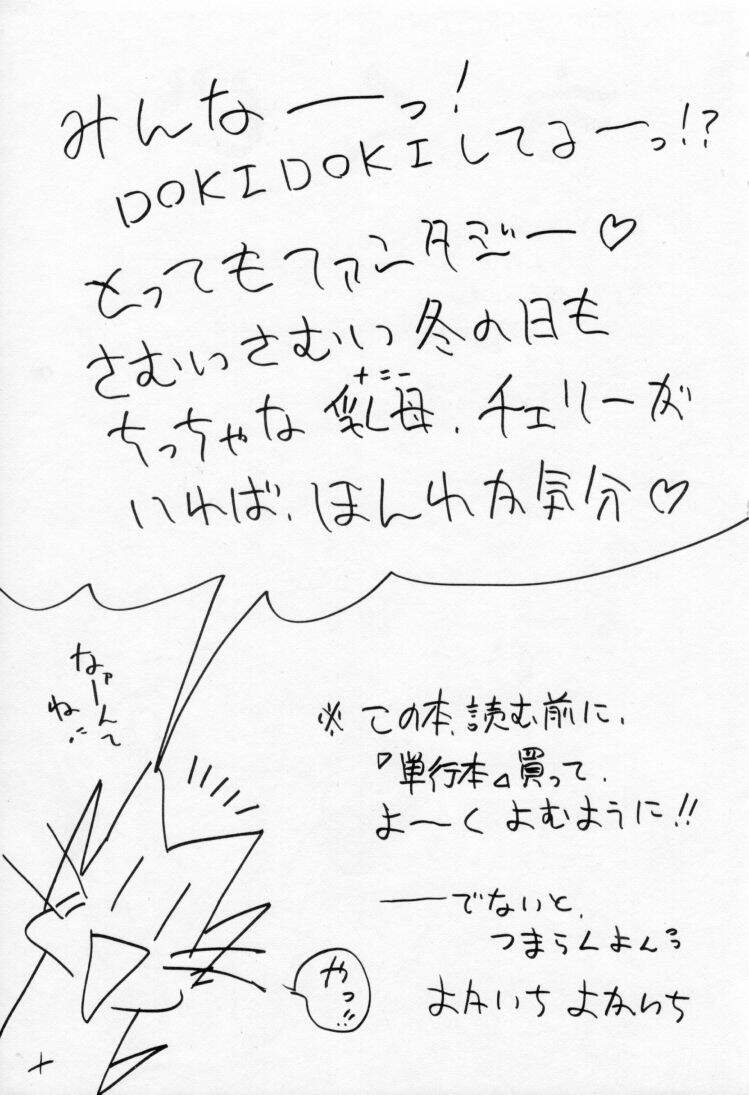 みんなーっ!
DOKIDOKIしてるーっ!?
とってもファンタジー♡
さむいさむい冬の日も
ちっちゃな乳母、チェリーが
いれば、ほんわか気分♡
なァーんて
ね
※この本、読む前に、
『単行本』買って、
よ〜くよむように!!
――でないと、
つまらんよん
よかいち よかいち
やっ